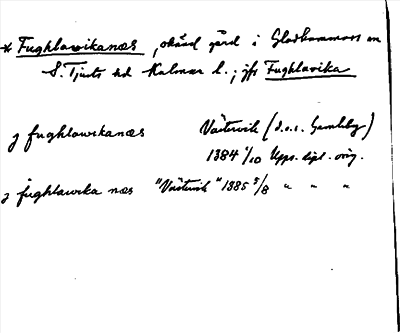 * Fughlawikanæs, okänd gård i Gladhammars sn
S. Tjusts hd Kalmar l.; jfr Fughlavika
j fughlawikanæs Västervik (d.v.s. Gamleby)
1384 1/10 Upps. dipl. orig.
j fughlawika næs "Västervik" 1385 5/8 " " "